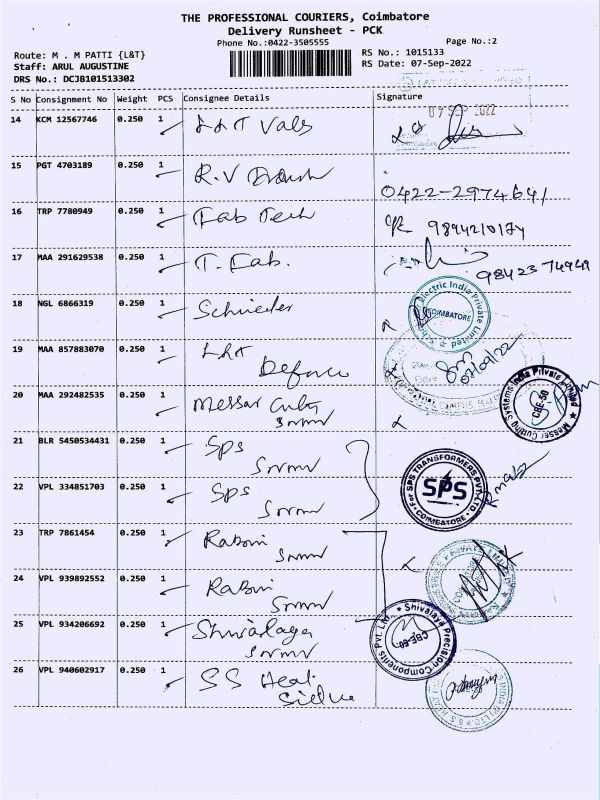 THE PROFESSIONAL COURIERS, Coimbatore
Delivery Runsheet - PCK
Phone No.:0422-3505555
Page No.:2
Route: M . M PATTI {L&T}
RS No.: 1015133
Staff: ARUL AUGUSTINE
RS Date: 07-Sep-2022
DRS No.: DCJB101513302
S No Consignment No Weight PCS Consignee Details Signature
07 SEP 2022
14 KCM 12567746 0.250 1 L&T Vals
15 PGT 4703189 0.250 1 R.V
0422-2974641
16 TRP 7780949 0.250 1 Fab Tech 9894210174
17 MAA 291629538 0.250 1 T. Fab. 98423 74949
18 NGL 6866319 0.250 1 Schnieder
Electric India Private Limited
COIMBATORE
19 MAA 857883070 0.250 1 L&T
Defence
07/09/22
20 MAA 292482535 0.250 1 Messar
Messer Cutting Systems India Private Limited
CBE-50
21 BLR 5450534431 0.250 1 Sps
22 VPL 334851703 0.250 1 Sps
For SPS TRANSFORMERS PVT. LTD
SPS
COIMBATORE
23 TRP 7861454 0.250 1
24 VPL 939892552 0.250 1
25 VPL 934206692 0.250 1
Shivalaya Precision Components Pvt. Ltd.
26 VPL 940602917 0.250 1 SS Heat